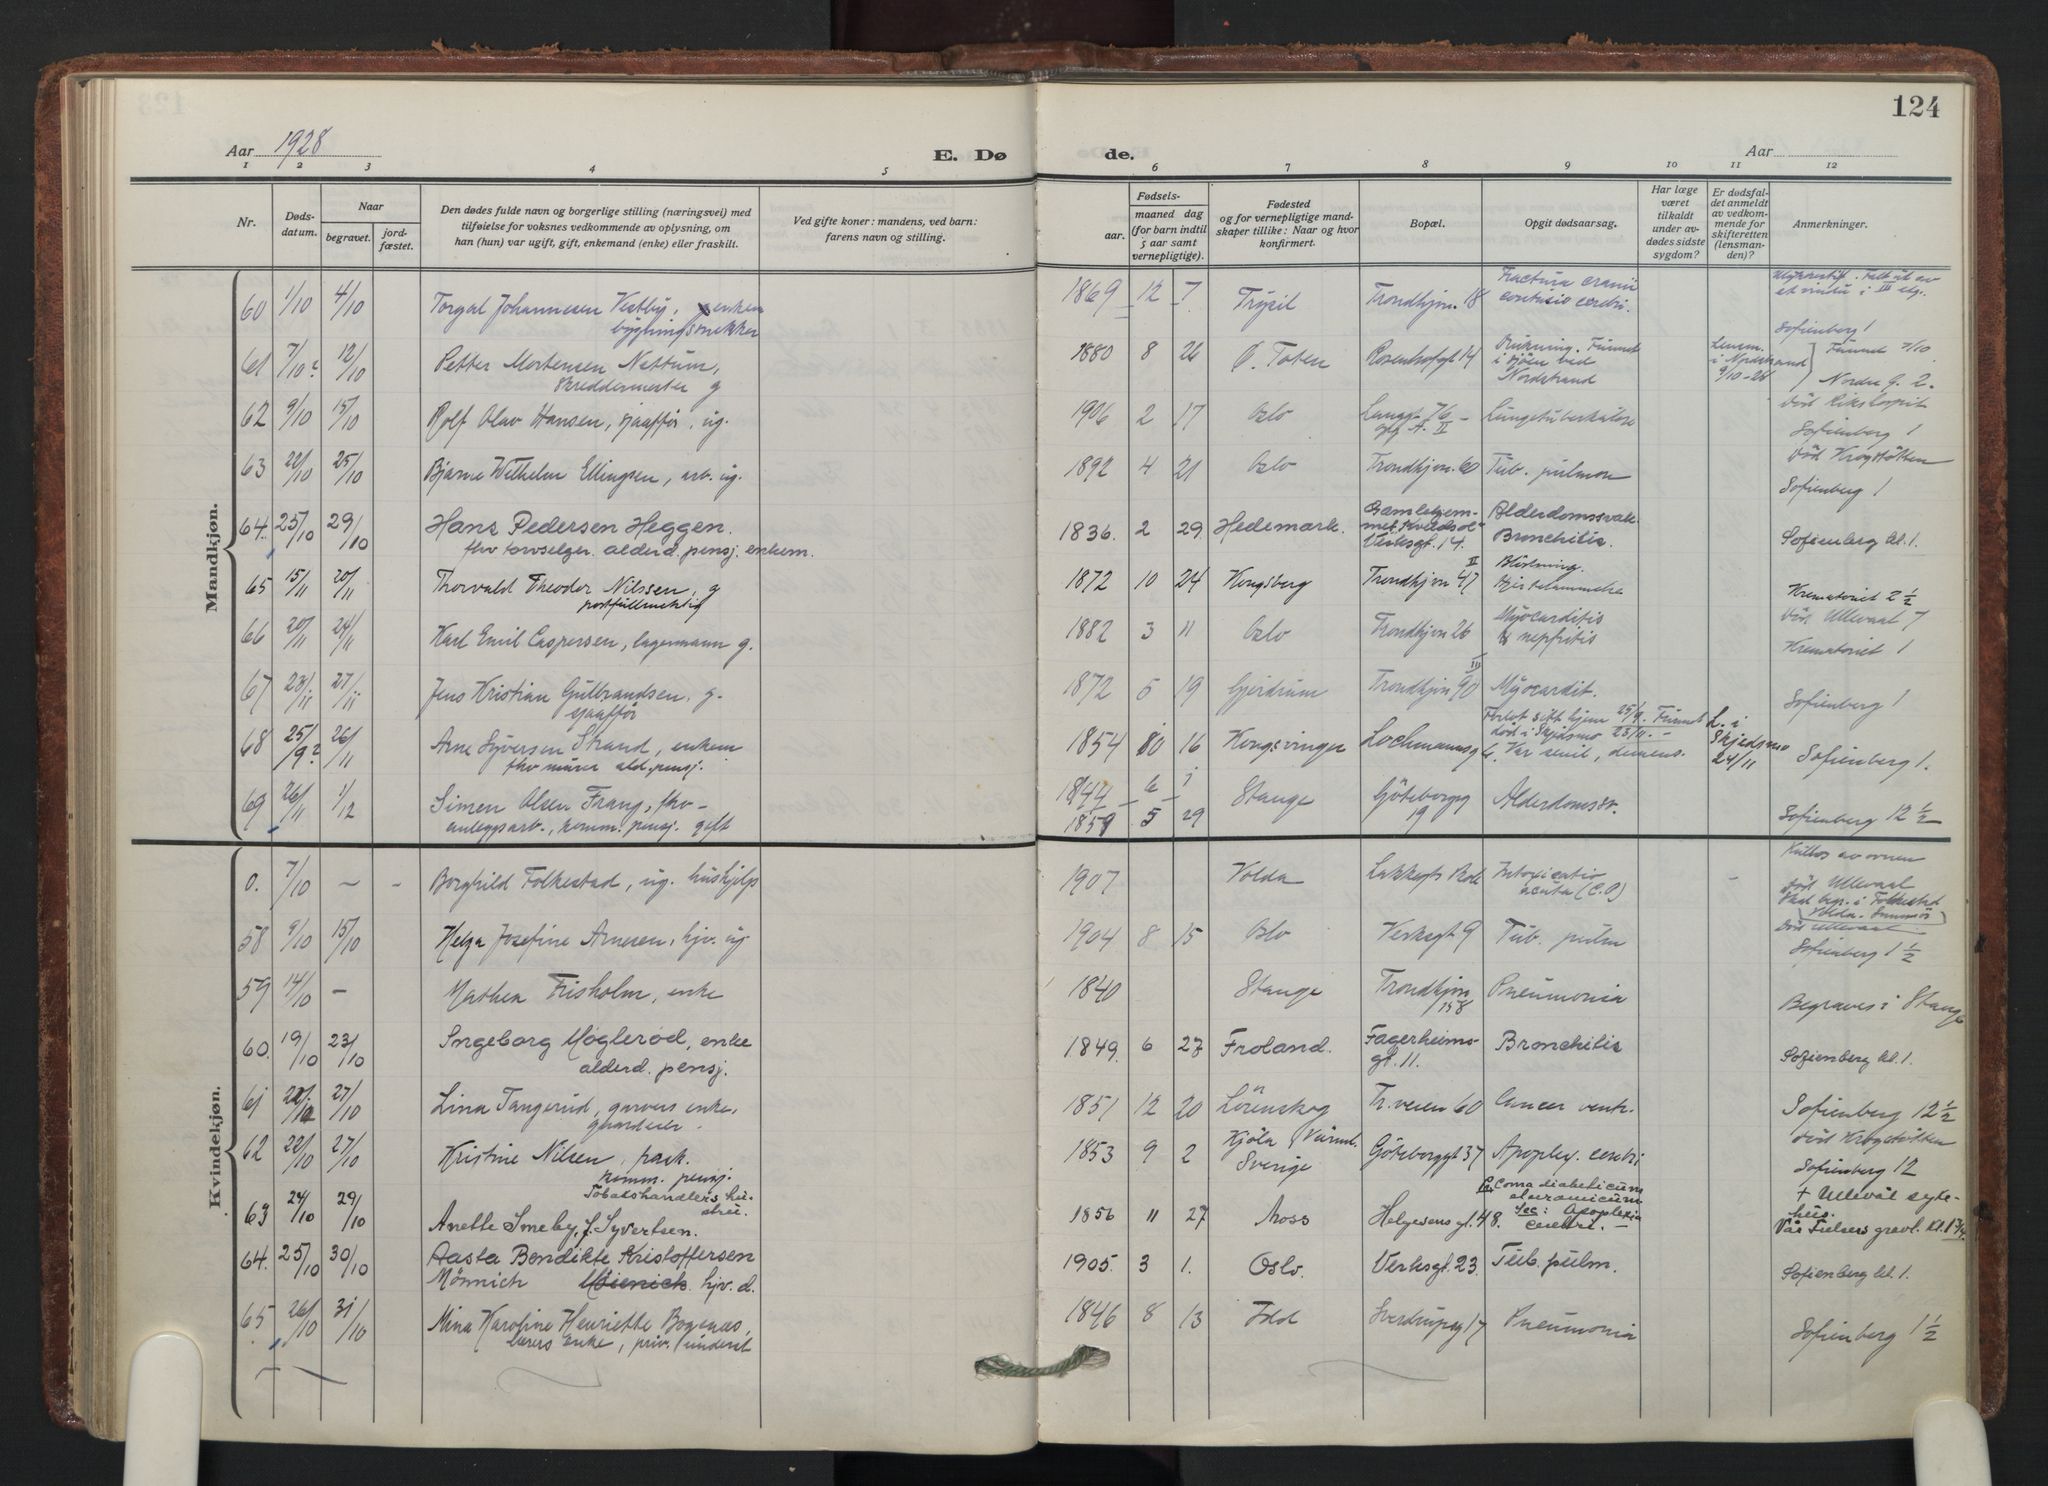 124
Aar 1928
E. Dø
de.
Aar
1 2 3 4 5 6 7 8 9 10 11 12
Nr.
Døds-
datum.
Naar
begravet.
jord-
fæstet.
Den dødes fulde navn og borgerlige stilling (næringsvei) med
tilføielse for voksnes vedkommende av oplysning, om
han (hun) var ugift, gift, enkemand (enke) eller fraskilt.
Ved gifte koner: mandens, ved barn:
farens navn og stilling.
Fødsels-
aar.
maaned dag
(for barn indtil
5 aar samt
vernepligtige).
Fødested
og for vernepligtige mand-
skaper tillike: Naar og hvor
konfirmert.
Bopæl.
Opgit dødsaarsag.
Har læge
været
tilkaldt
under av-
dødes sidste
sygdom?
Er dødsfal-
det anmeldt
av vedkom-
mende for
skifteretten
(lensman-
den)?
Anmerkninger.
Mandkjøn.
60 1/10 4/10 Torgal Johannesen Vestby, enkem
bygningssnekker
1869 12 7 Trysil Trondhjvn. 18 Fractura cranii
contusio cerebri.
Ulykkestilf. Falt ut av
et vindu i III etg.
Sofienberg 1
61 7/10? 12/10 Petter Mortensen Nettum,
skreddermester g
1880 8 26 Ø. Toten Rosenhofgt 14 Drukning. Funnet
i sjøen ved
Nordstrand
Lensm.
i Nordstrand
9/10-28
Funnet 7/10
Nordre G. 2.
62 9/10 15/10 Rolf Olav Hansen, sjaffør, ug.
1906 2 17 Oslo Langgt 76
opg A. II
Lungetuberkulose
Død Rikshospit
Sofienberg 1
63 22/10 25/10 Bjarne Wilhelm Ellingsen, arb. ug.
1892 4 21 Oslo Trondhjvn. 60 Tub. pulmon
Død Krogstøtten
Sofienberg 1
64. 25/10 29/10 Hans Pedersen Heggen.
fhv torvselger. alderd. pensj. enkem.
1836. 2 29. Hedemark. Gamlehjem-
met "Kveldsol"
Verksgt. 14.
Alderdomssvak.
Bronchitis.
Sofienberg kl. 1.
65 15/11 20/11 Thorvald Theodor Nilssen, g
postfullmektig
1872 10 24 Kongsberg Trondhjvn 47 II Blødning.
Hjertelammelse
Krematoriet 2 1/2
66 20/11 24/11 Karl Emil Caspersen, lagermann g.
1882 3 11 Oslo Trondhjvn 26 Myocarditis
nepfritis
Død Ullevaal 7
Krematoriet 1
67 23/11 27/11 Jens Kristian Gulbrandsen, g.
sjaffør
1872 5 19 Gjerdrum Trondhjvn 90 III Myocardit.
Sofienberg 1
68 25/9? 26/11 Arne Syversen Strand, enkem
fhv murer ald. pensj.
1854 10 16 Kongsvinger Lochmannsg
6.
Forlot sitt hjem 25/9. Funnet
død i Skjedsmo 23/11.
Var senil, demens.
L. i
Skjedsmo
24/11
Sofienberg 1.
69 26/11 1/12 Simen Olsen Frang, fhv
anleggsarb., komm. pensj. gift
1844 6 1
1857 5 29
Stange Göteborgg
19
Alderdomssv.
Sofienberg 12 1/2
Kvindekjøn.
0. 7/10 - - Borghild Folkestad, ug. hushjelp
1907 Volda Lakkegts skole Intoxicatio
acuta (C.O)
Kullos av ovnen
Død Ullevaal
Skal begr. i Folkestad
Volda - Sunnmør
58 9/10 15/10 Helga Josefine Arnesen, hjv. ug
1904 8 15 Oslo Verksgt 9 Tub. pulm
Død Ullevaal
Sofienberg 1 1/2
59 14/10 - Mathea Frisholm, enke
1840 Stange Trondhjvn
158
Pneumonia
Begraves i Stange
60. 19/10 23/10 Ingeborg Møglerød, enke
alderd. pensj.
1849. 6 27 Froland. Fagerheims-
gt. 11.
Bronchitis
Sofienberg kl. 1.
61 27/10 Lina Tangerud, garvers enke,
1851 12 20 Lörenskog Tr. veien 60 Cancer ventr.
Sofienberg 12 1/2
62 22/10 27/10 Kristine Nilsen, frask.
komm. pensj.
1853 9 2 Kjöla Värml.
Sverige
Göteborggt 37 Apoplex. cerebri
Død Krogstøtten
Sofienberg 12
63 24/10 29/10 Tobakshandlers hu-
stru.
Anette Smeby, f. Syvertsen.
1856 11 27 Moss Helgesens gt. 48. Pr. Coma diabeticum
et uramicum
Sec: Apoplexia
cerebri.
+ Ullevål syke-
hus.
Vår Frelsers gravl. kl. 1 3/4.
64. 25/10 30/10 Aasta Bendikte Kristoffersen
Mönnich hjv. d.
1905. 3 1. Oslo. Verksgt. 23. Tub. pulm.
Sofienberg kl. 1.
65 26/10 31/10 Mina Karoline Henriette Bogenæs,
lærers enke, priv. underst
1846 8 13 Idd Sverdrupsg 17 Pneumonia
Sofienberg 1 1/2